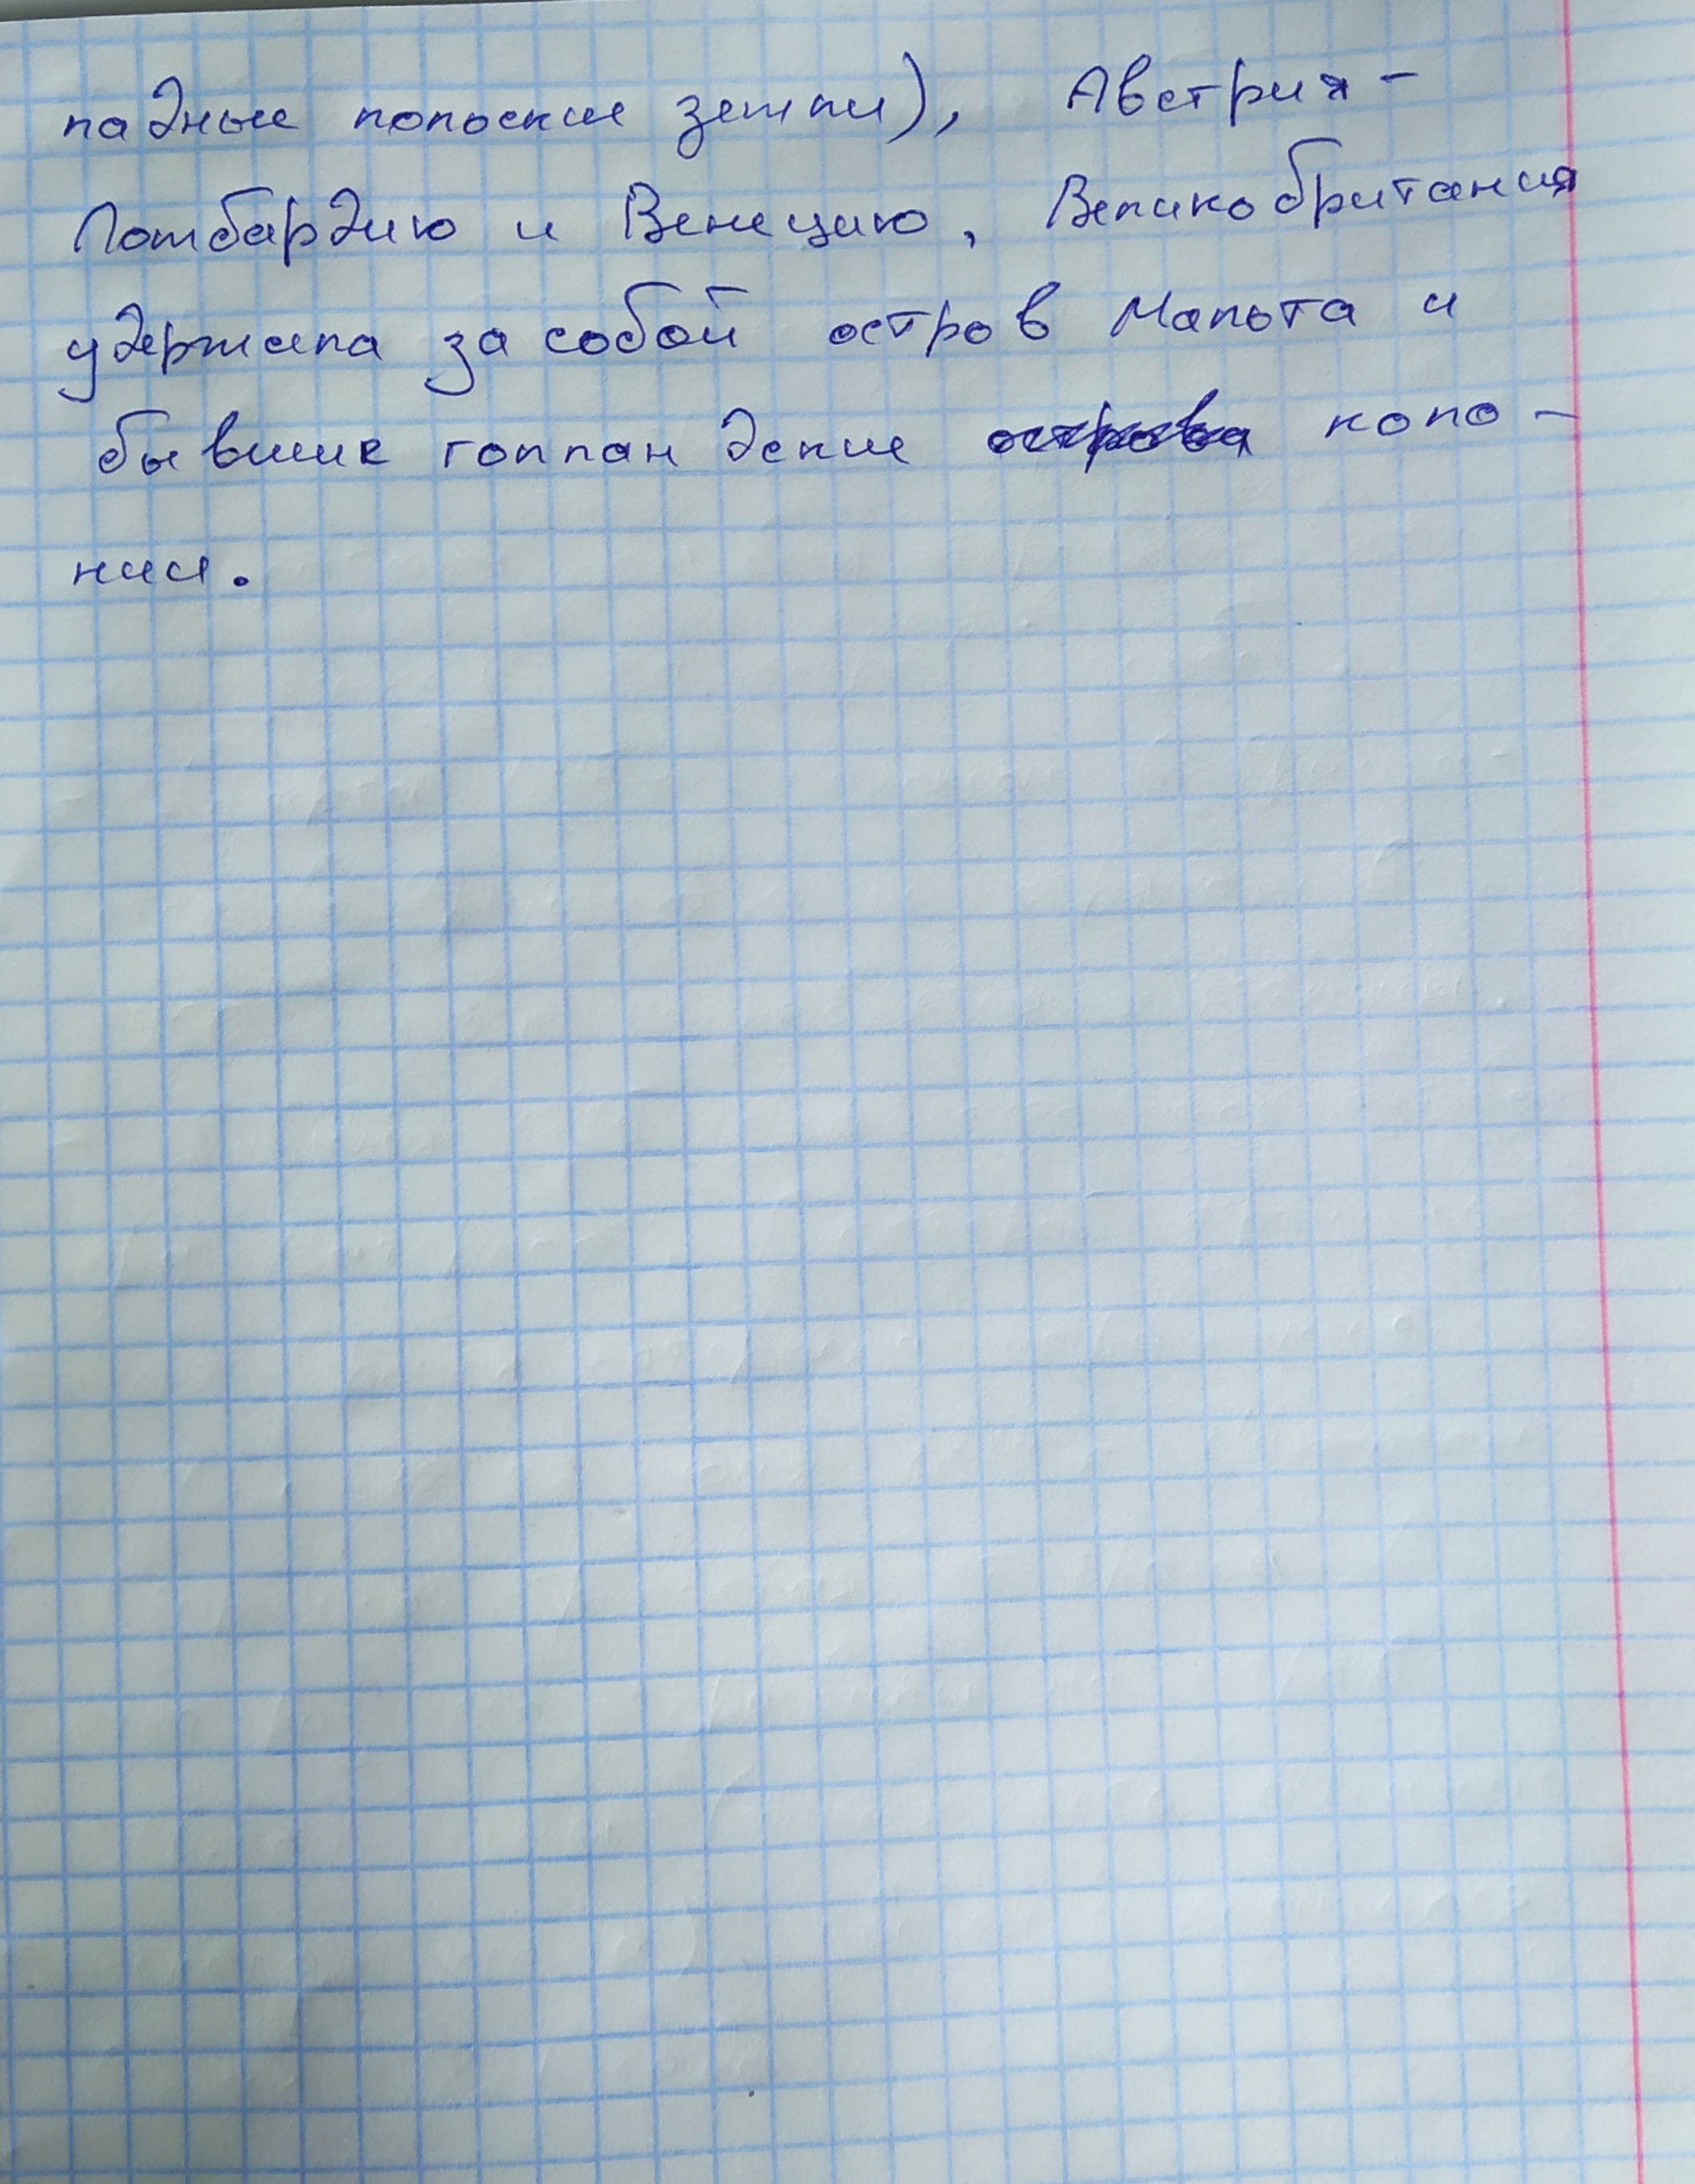 падные польские земли), Австрия -
Ломбардию и Венецию, Великобритания
удержала за собой остров Мальта и
бывшие голландские острова коло-
нии.